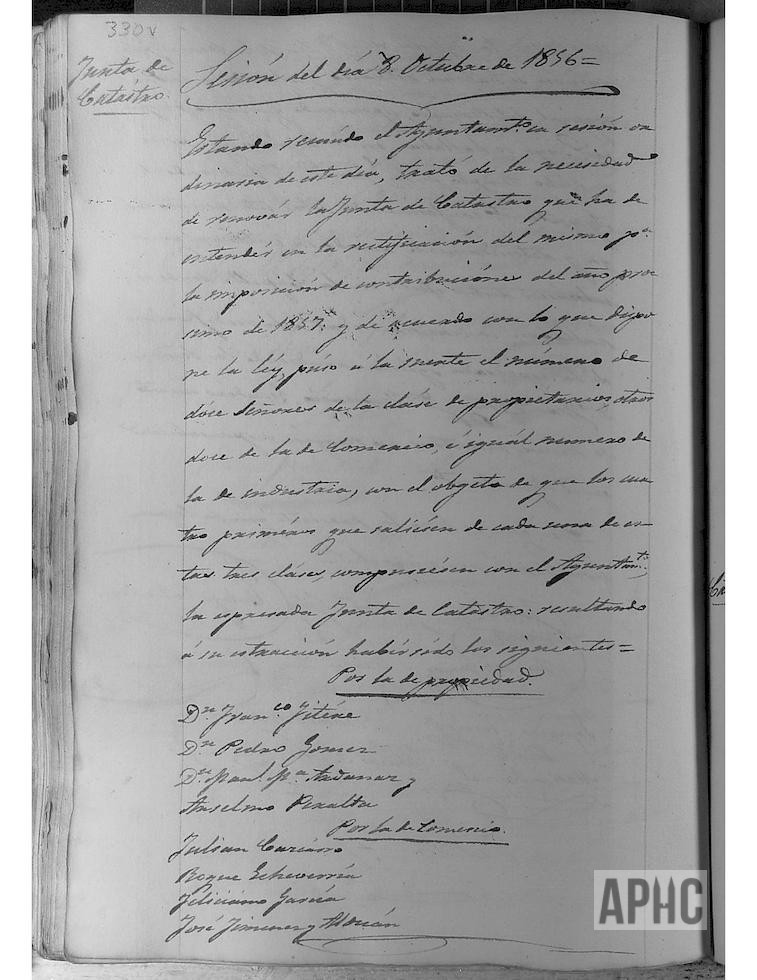 330v
Junta de
Catastro.
Sesión del día 8. Octubre de 1856=
Estando reunido el Ayuntamto. en sesión or
dinaria de este día, trató de la necesidad
de renovár la Junta de Catastro que ha de
entendér en la rectificación del mismo pa.
la imposición de contribuciónes del año pro
simo de 1857: y de acuerdo con lo que dispo
ne la léy, puso á la suerte el número de
dóce Señores de la cláse de propietarios, otros
doce de la de Comercio, é iguál numero de
la de industria, con el obgeto de que los cua
tro priméros que saliésen de cada una de es
tas tres cláses compusiésen con el Ayuntamto.
la espresada Junta de Catastro: resultando
á su estracción habér sido los siguientes=
Por la de propiedad.
Dn. Franco. Jiténe
Dn. Pedro Gomez
Dn. Manl. Ma. Andanaz y
Anselmo Peralta
Por la de Comercio.
Julian
Roque Echeverría
Féliciano García
José Jimenez y Adrián
APHC